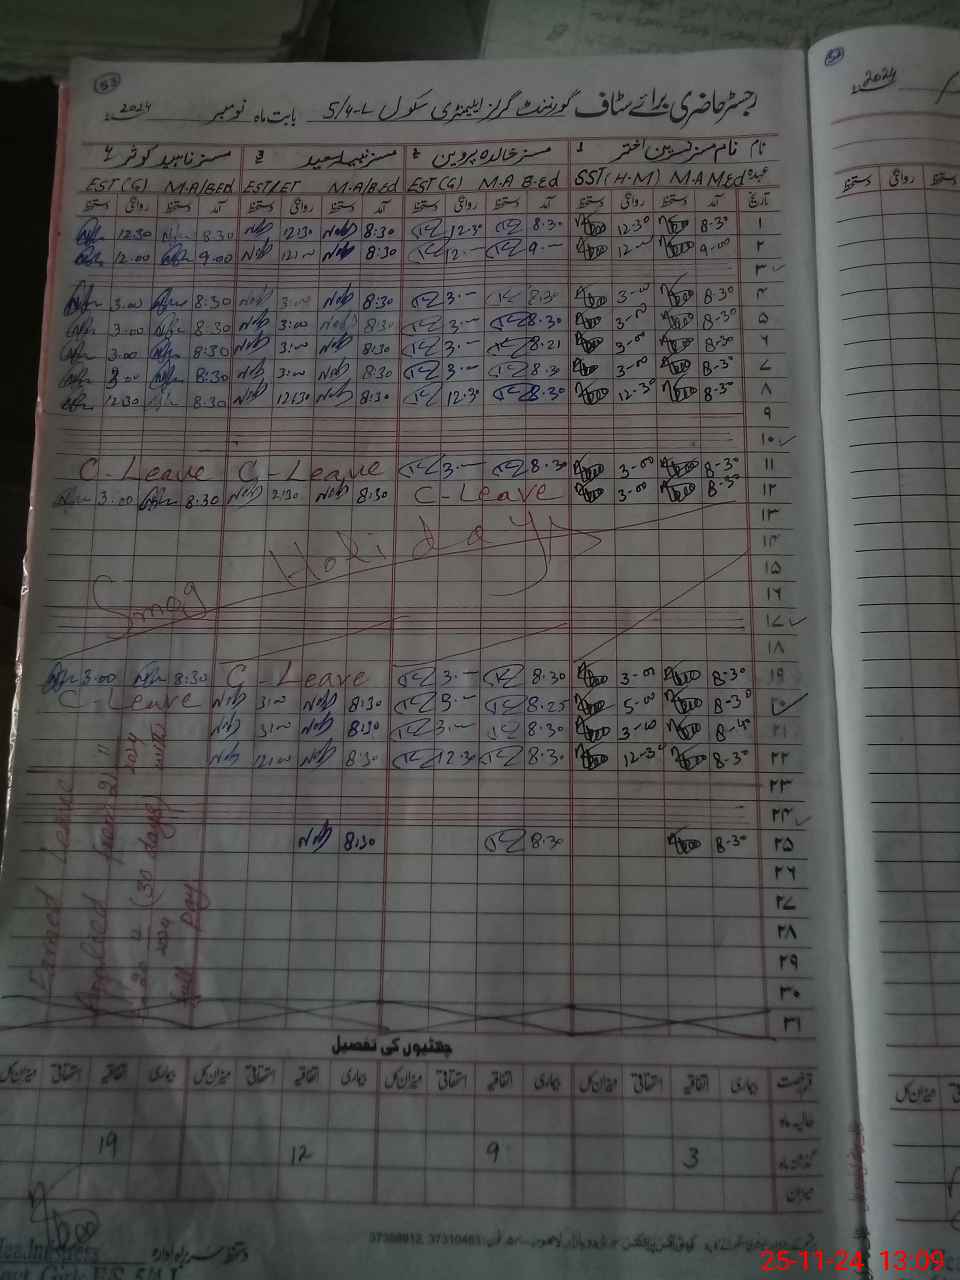 53
رجسٹر حاضری برائے سٹاف گورنمنٹ گرلز ایلیمنٹری سکول 5/4-L بابت ماہ نومبر 2024
نام مسز نسرین اختر 1 مسز خالدہ پروین 2 مسز نبیلہ سعید 3 مسز ناہید کوثر 4
عہدہ SST (H.M) M.A M.Ed EST (G) M.A B.Ed EST/ET M.A/B.Ed EST (G) M.A/BEd
تاریخ آمد دستخط روانگی دستخط آمد دستخط روانگی دستخط آمد دستخط روانگی دستخط آمد دستخط روانگی دستخط
۱ 8-30 12-30 8.30 12.30 8:30 12:30 8.30 12.30
۲ 9-00 12-- 9-- 12-- 8:30 12:-- 9.00 12.00
۳
۴ 8-30 3-00 8.30 3.-- 8:30 3:00 8:30 3.00
۵ 8-30 3-00 8.30 3.-- 8:30 3:00 8:30 3.00
۶ 8-30 3-00 8.21 3.-- 8:30 3:00 8:30 3.00
۷ 8-30 3-00 8.30 3.-- 8:30 3:00 8:30 3.00
۸ 8-30 12-30 8.30 12.30 8:30 12:30 8.30 12.30
۹
۱۰
۱۱ 8-30 3-00 8.30 3.-- C-Leave C-Leave
۱۲ 8-30 3-00 C-Leave 8:30 2:30 8.30 3.00
۱۳
۱۴
۱۵
۱۶
۱۷
۱۸
Smog Holidays
۱۹ 8-30 3-00 8.30 3.-- C-Leave 8:30 3.00
۲۰ 8-30 5-00 8.25 3.-- 8:30 3:00 C-Leave
۲۱ 8-40 3-00 8.30 3.-- 8:30 3:00
۲۲ 8-30 12-30 8.30 12.30 8:30 12:00
۲۳
۲۴
۲۵ 8-30 8.30 8:30
۲۶
۲۷
۲۸
۲۹
۳۰
۳۱
Earned Leave
Applied from 21-11-2024
20-12-2024 (30 days) with
full Pay
چھٹیوں کی تفصیل
قسم رخصت بیماری اتفاقیہ استحقاقی میزان کل بیماری اتفاقیہ استحقاقی میزان کل بیماری اتفاقیہ استحقاقی میزان کل بیماری اتفاقیہ استحقاقی میزان کل
حالیہ ماہ
گذشتہ ماہ 3 9 12 19
میزان
دستخط سربراہ ادارہ
37310463
25-11-24 13:09
2024
دستخط روانگی دستخط
میزان کل